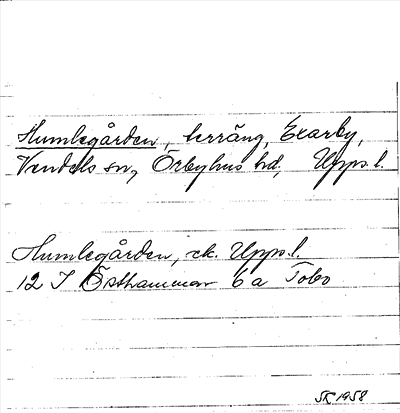 Humlegården, terräng, Exarby,
Vendels sn, Örbyhus hd, Upps.l.
Humlegården, ek. Upps.l.
12 I Östhammar 6a Tobo
SK 1958